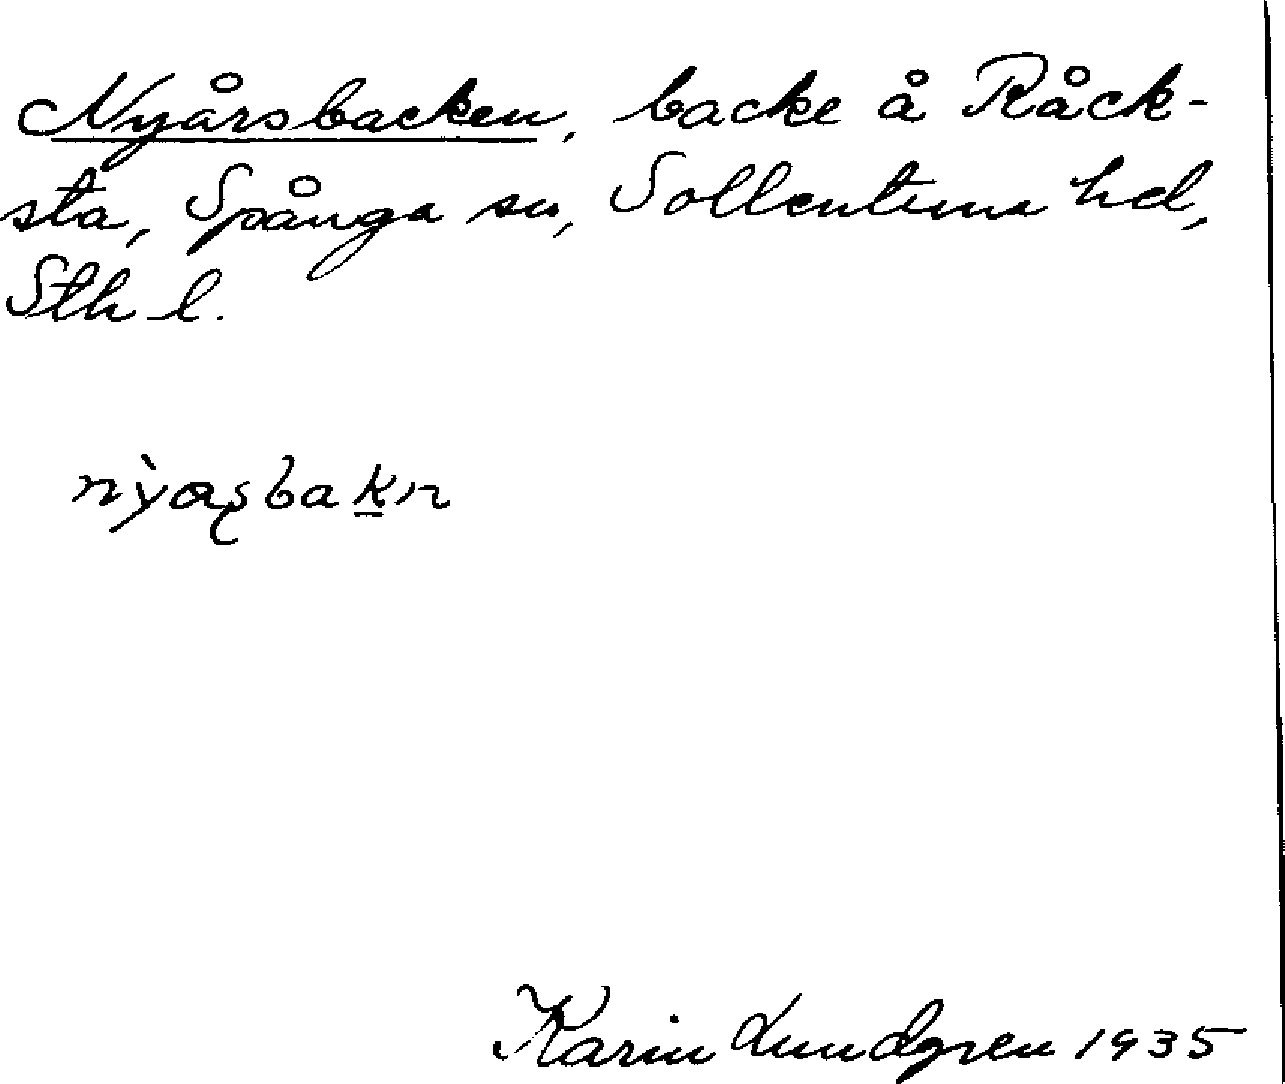 Nyårsbacken, backe å Råck-
sta, Spånga sn, Sollentuna hd,
Sth l.
nỳaʂbak̲n
Karin Lundgren 1935